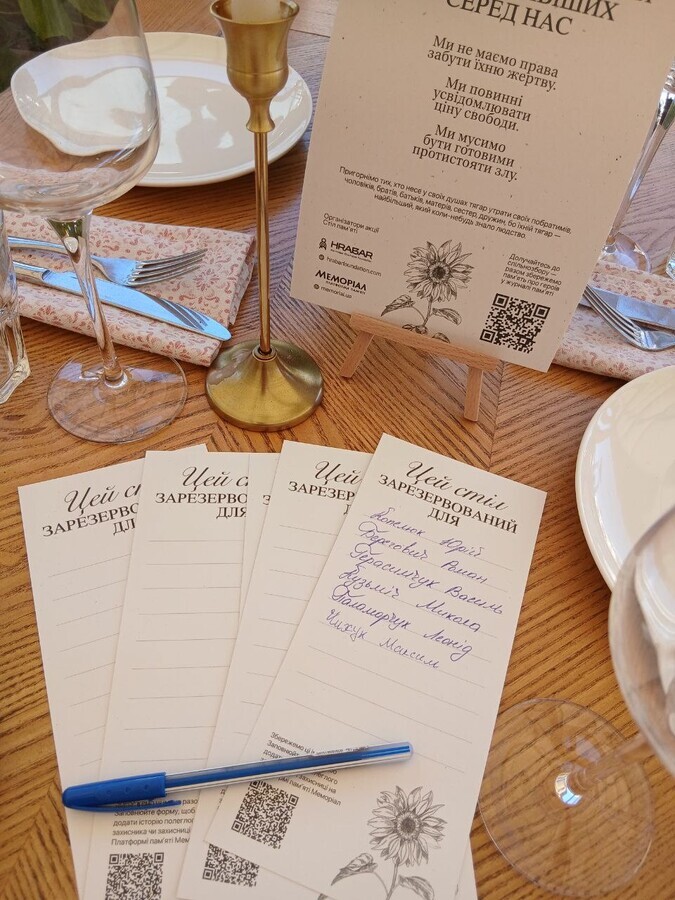 СЕРЕД НАС
Ми не маємо права
забути їхню жертву.
Ми повинні
усвідомлювати
ціну свободи.
Ми мусимо
бути готовими
протистояти злу.
Пригорнімо тих, хто несе у своїх душах тягар утрати своїх побратимів,
чоловіків, братів, батьків, матерів, сестер, дружин, бо їхній тягар —
найбільший, який коли-небудь знало людство.
Організатори акції
Стіл пам'яті
HRABAR
hrabarfoundation.com
МЕМОРІАЛ
memorial.ua
Долучайтесь до
спільнозбору —
разом збережемо
пам'ять про героїв
у журналі пам'яті
Цей стіл
ЗАРЕЗЕРВОВ
ДЛЯ
Цей
ЗАРЕЗЕРВО
ДЛЯ
Цей
ЗАРЕЗЕРВ
Цей стіл
ЗАРЕЗЕРВОВАНИЙ
ДЛЯ
Копелюк Юрій
Герасимчук Василь
Кузьміч Микола
Паламарчук Леонід
Чижук Максим
Збережемо ці
Заповнюйте форму, щоб
додати історію
захисника чи захисниці
Платформі пам'яті
пам'яті Меморіал